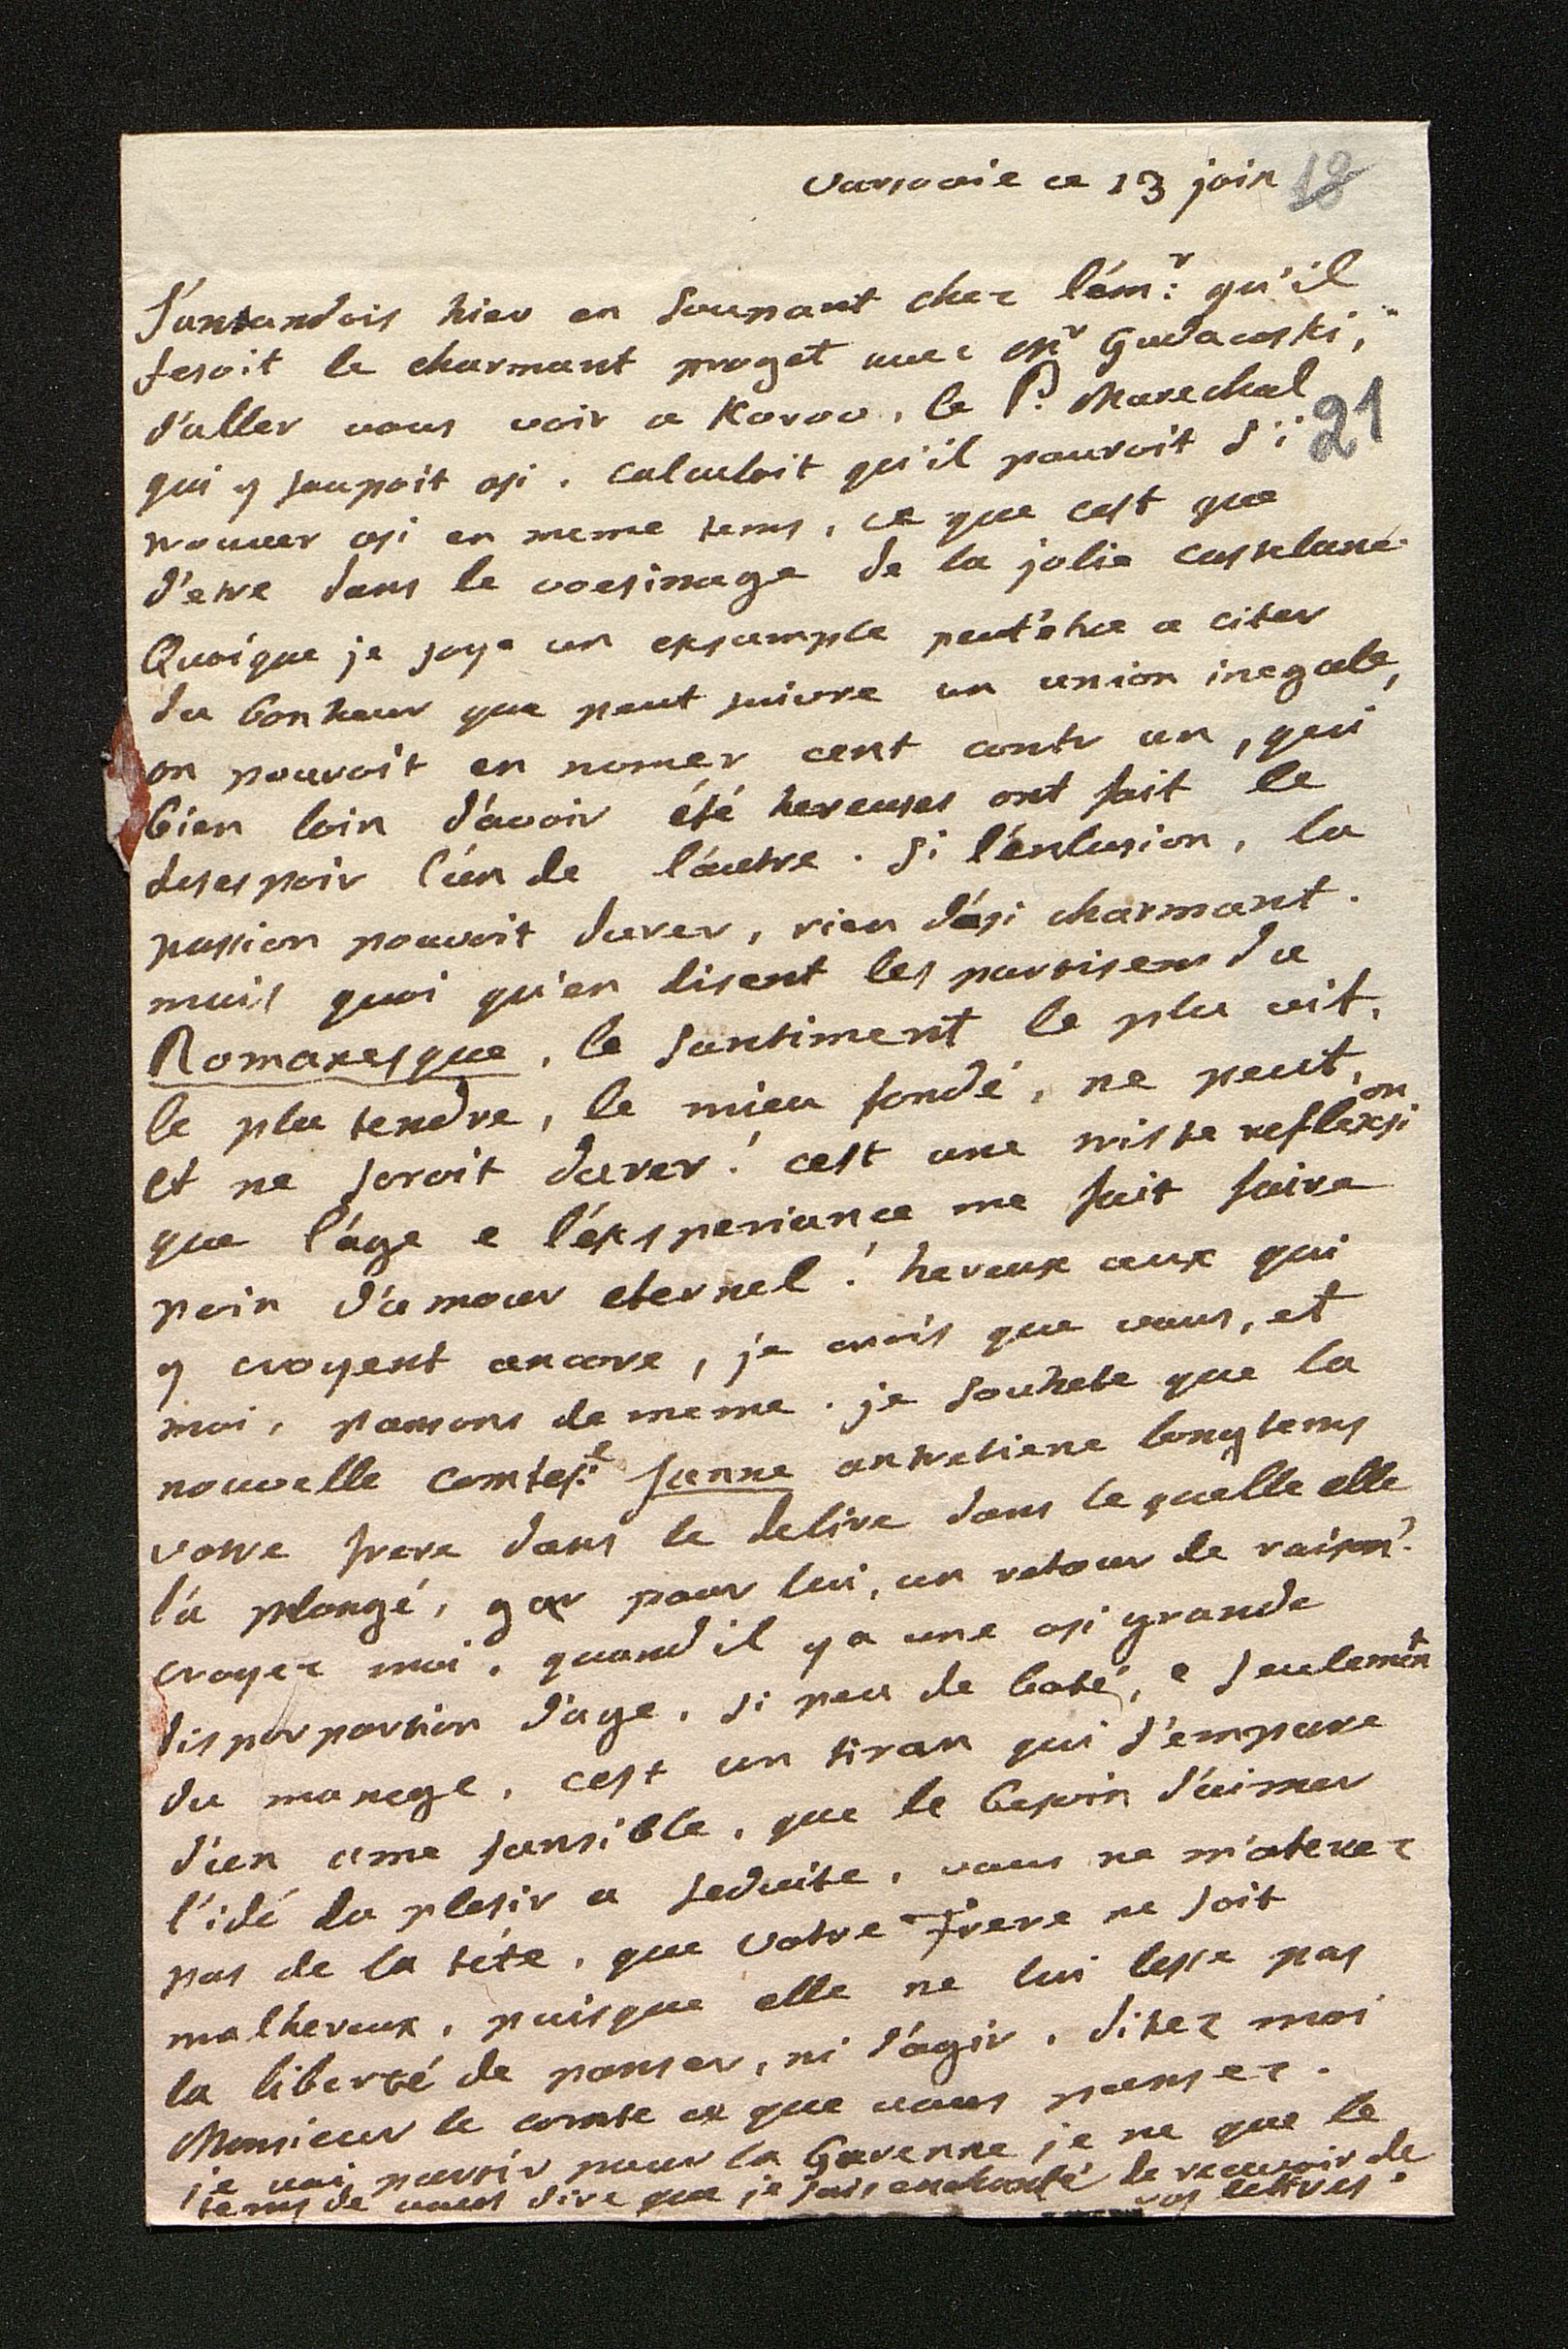 Varsovie ce 13 juin 18
J'antandois hier en soupant chez l'ém:r qu'il
fesoit le charmant proget avec Mr Gudacoski,
d'aller vous voir a Korov, le P. Marechal
21
qui y soupoit osi, calculoit qu'il pouroit s'i
trouver osi en meme tems, ce que cest que
d'etre dans le voesinage de la jolie castelane
Quoique je soye un exsample peut'etre a citer
du bonheur que peut suivre un union inegale,
on pouroit en nomer cent contr un, qui
bien loin d'avoir été hereuses ont fait le
desespoir l'un de l'autre. si l'enlusion, la
passion pouvoit durer, rien d'ósi charmant.
mais quoi qu'en disent les partisens du
Romanesque, le santiment le plu vif,
le plu tendre, le mieu fondé, ne peut,
et ne soroit durer! cest une triste reflexsion
que l'age e l'éksperiance me fait faire
poin d'amour eternel! hereux ceux qui
y croyent encore, je crois que vous, et
moi, pansons de meme. je souhete que la
nouvelle comtes:e Janne antretiene longtems
votre frere dans le delire dans le quelle elle
l'a plongé, gar pour lui, un retour de raison?
croyez moi, quand il y a une osi grande
disporportion d'age, si peu de boté, e seulement
du manege, cest un tiran qui s'empare
d'un ame sansible, que le besoin d'aimer
l'idé du plesir a seduite, vous ne m'oterez
pas de la téte, que votre frere ne soit
malhereux, puisque elle ne lui lesse pas
la liberté de panser, ni d'agir, ditez moi
Monsieur le comte ce que vous pansez.
je vai partir pour la Garenne je ne que le
tems de vous dire que je suis enchanté de recevoir de
vos lettres.